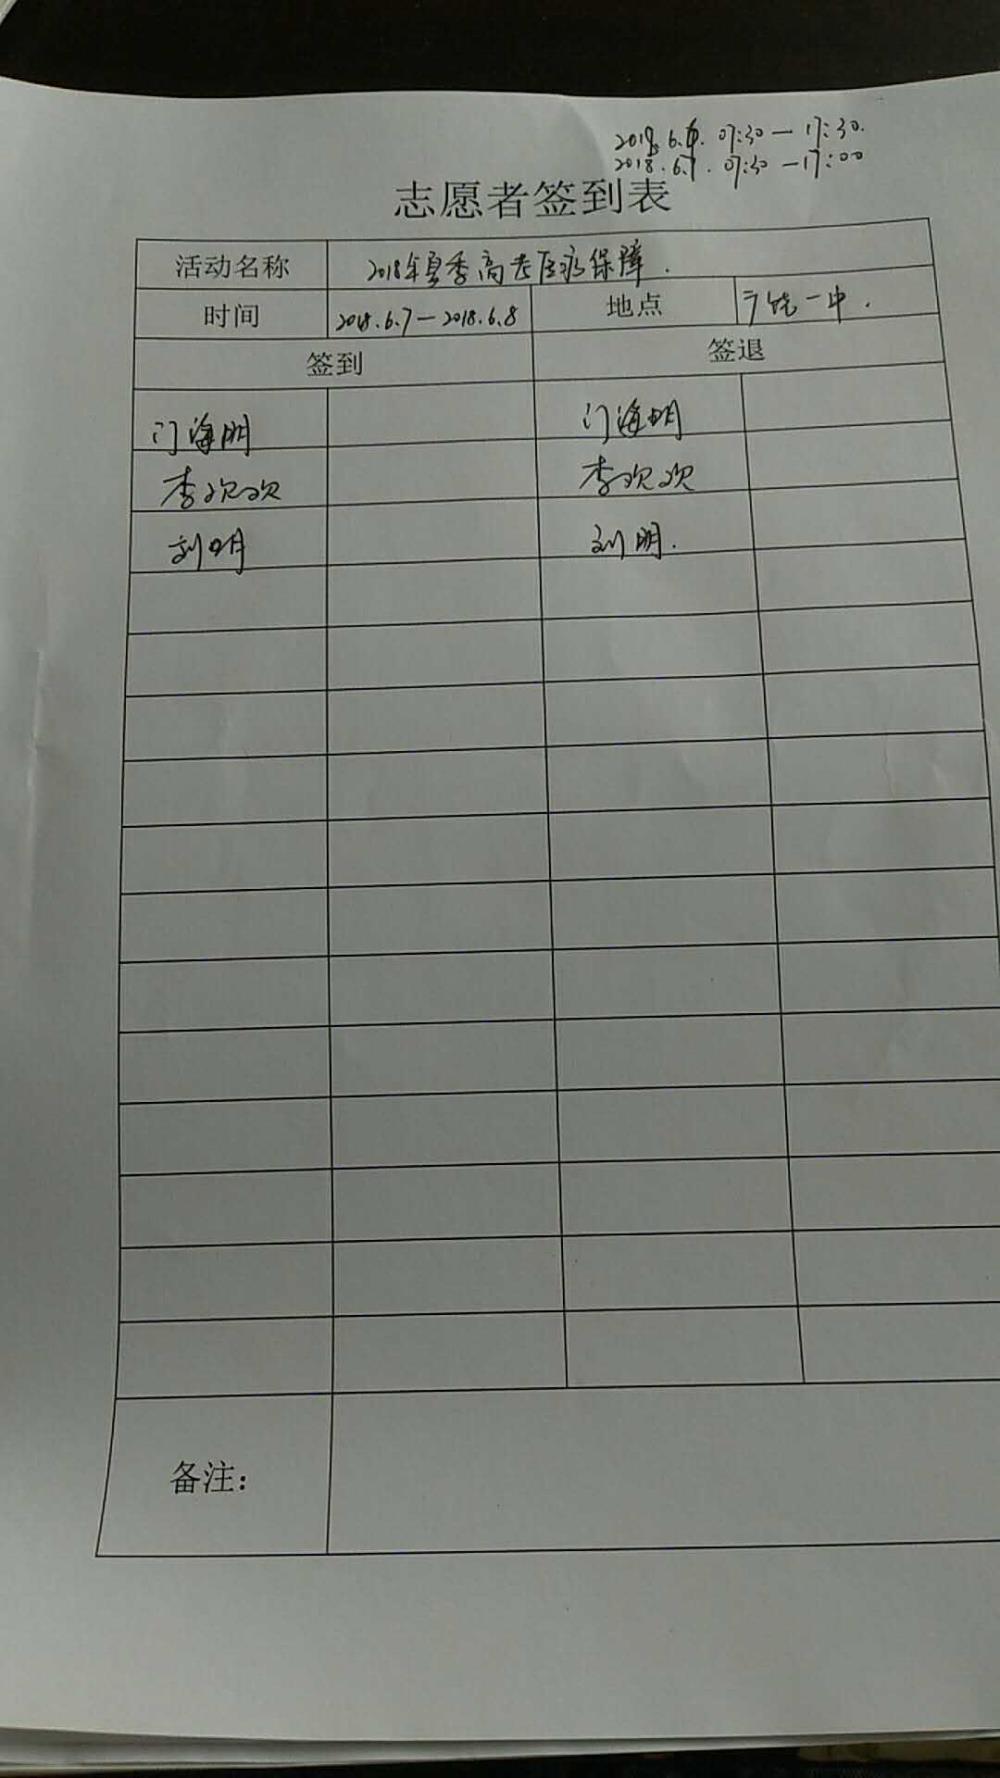 2018.6.6. 07:30—17:30.
2018.6.7. 07:30—17:00
志愿者签到表
活动名称 2018年夏季高考医疗保障.
时间 2018.6.7—2018.6.8 地点 广饶一中.
签到 签退
门海明 门海明
李欢欢 李欢欢
刘明 刘明.
备注: